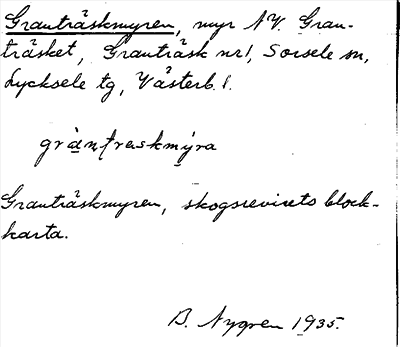 Granträskmyren, myr NV. Gran-
träsket, Granträsk nr 1, Sorsele sn,
Lycksele tg, Västerb. l.
gràntreskmýra
Granträskmyren, skogsrevirets block-
karta.
B. Nygren 1935.